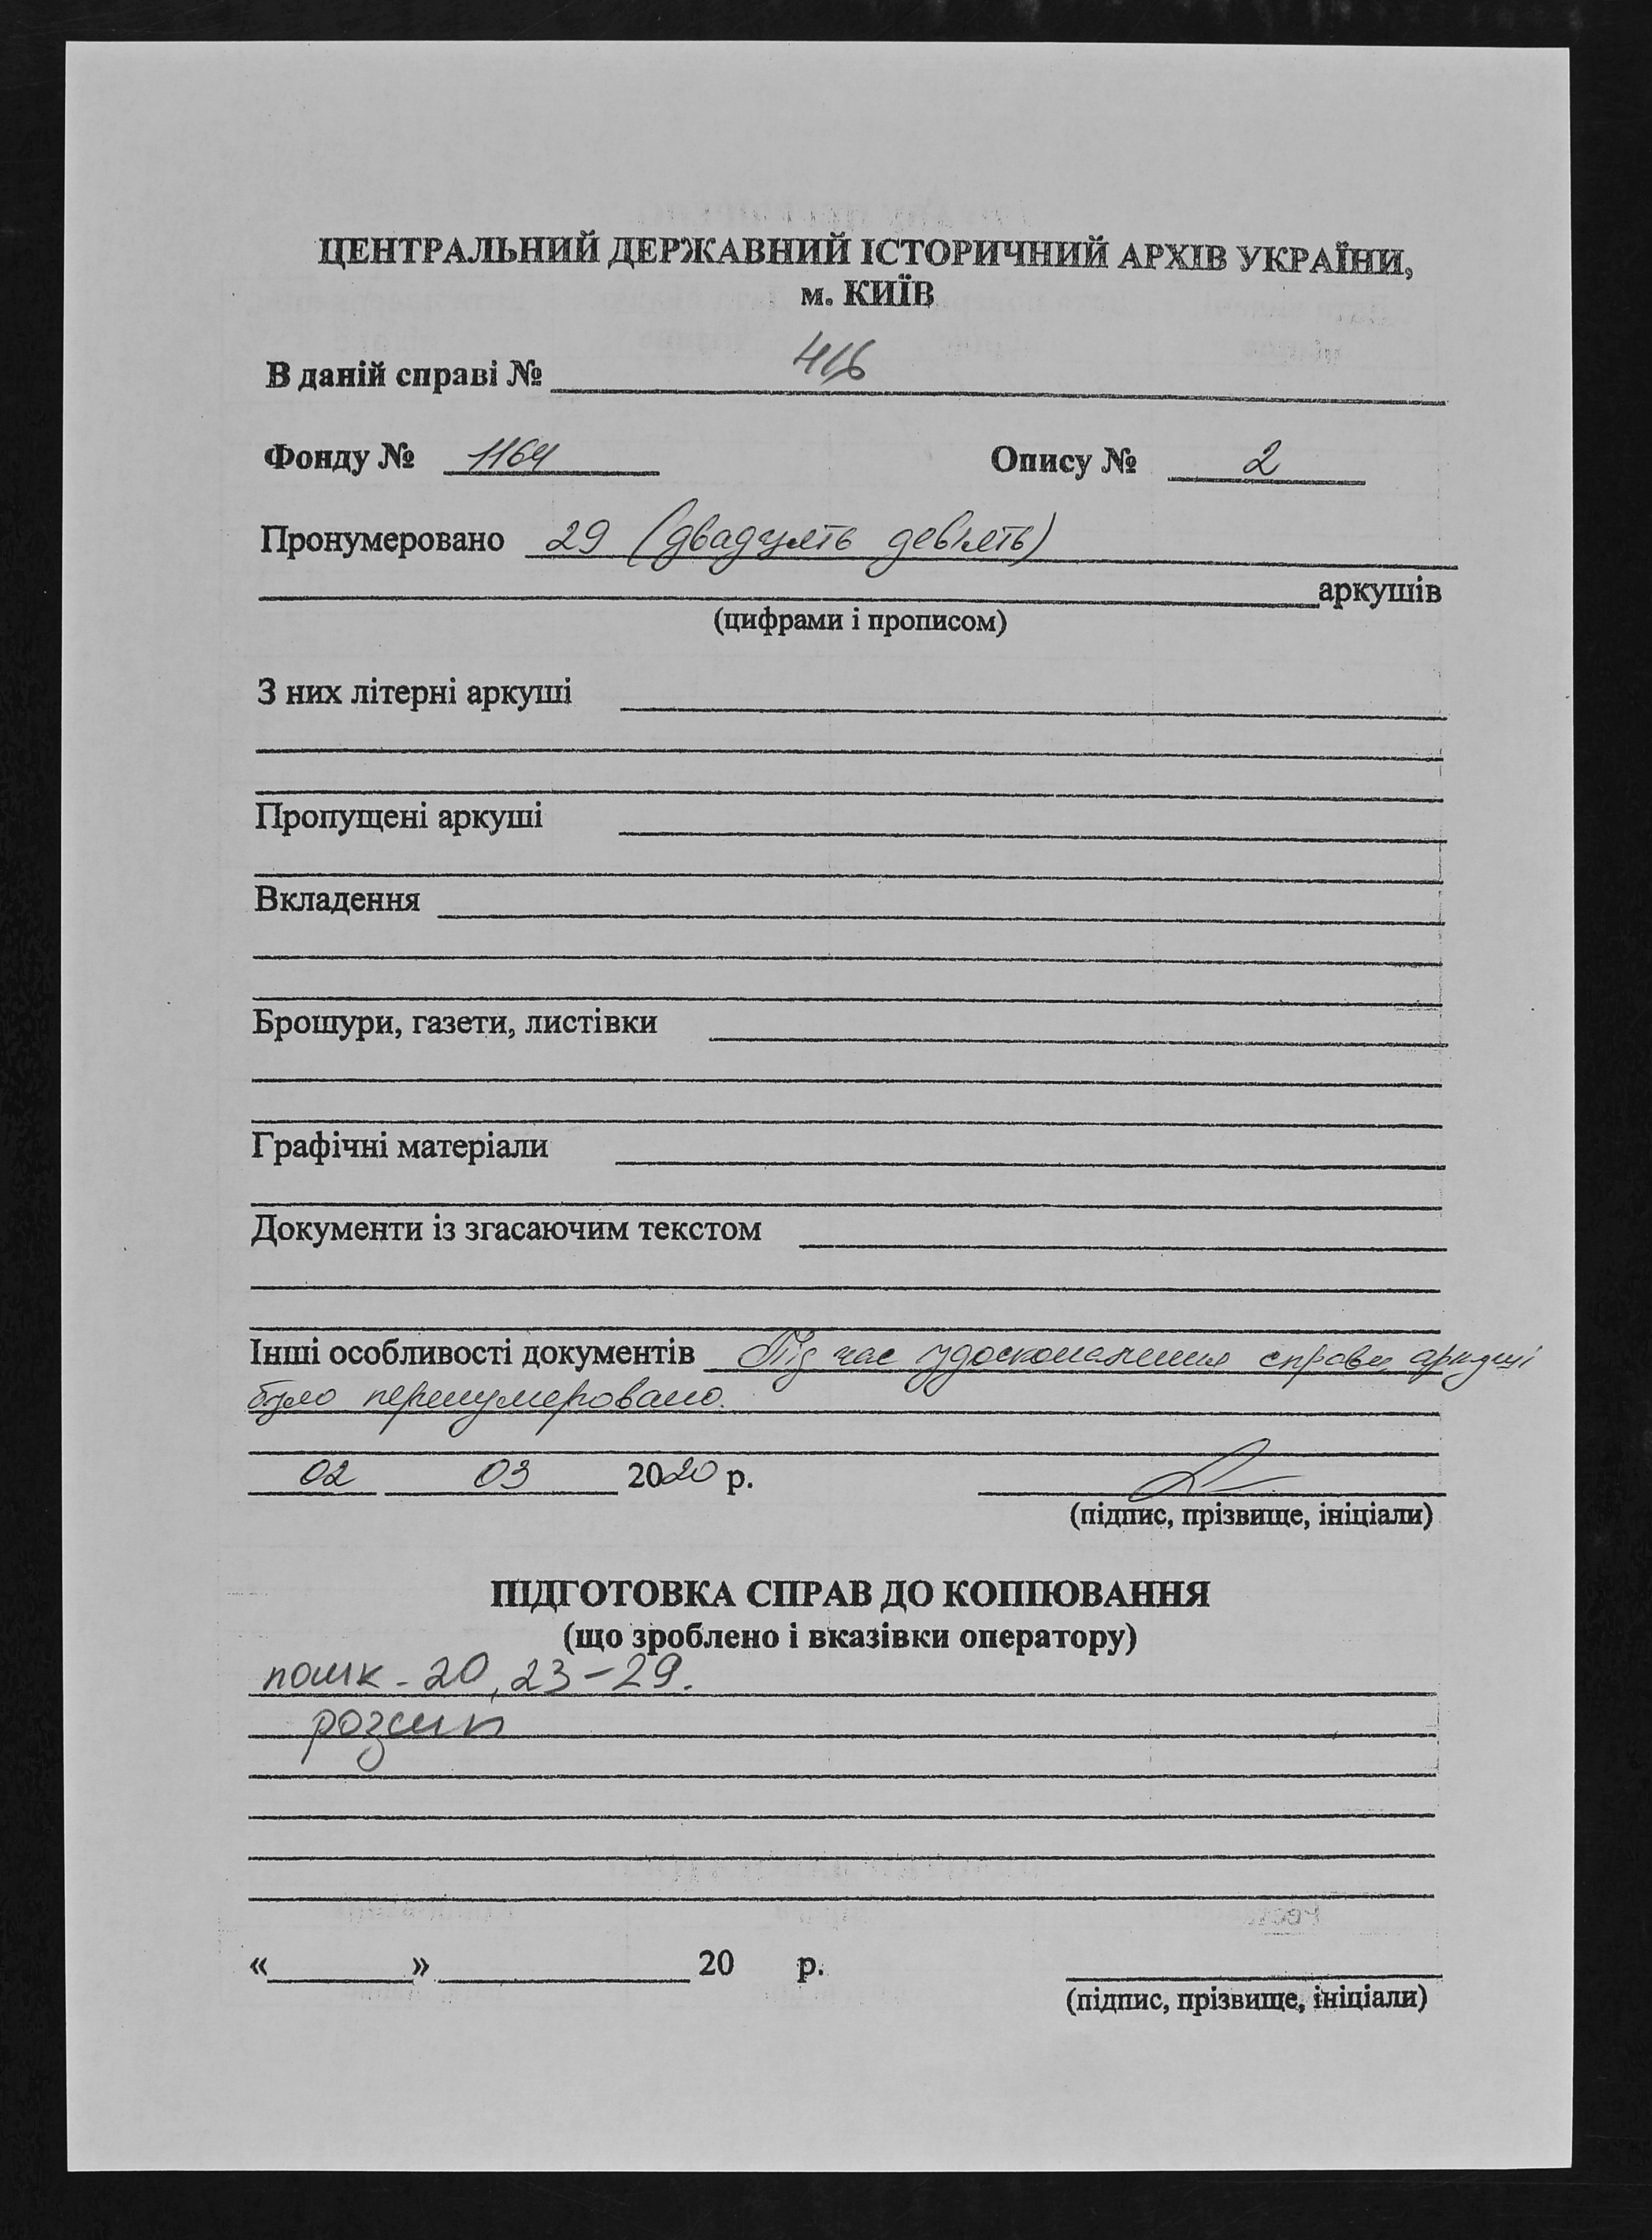 ЦЕНТРАЛЬНИЙ ДЕРЖАВНИЙ ІСТОРИЧНИЙ АРХІВ УКРАЇНИ,
м. КИЇВ
В даній справі № 416
Фонду № 1164 Опису № 2
Пронумеровано 29 (двадцять девять)
аркушів
(цифрами і прописом)
З них літерні аркуші
Пропущені аркуші
Вкладення
Брошури, газети, листівки
Графічні матеріали
Документи із згасаючим текстом
Інші особливості документів Під час удосконалення справи аркуші
було перенумеровано.
02 03 2020 р.
(підпис, прізвище, ініціали)
ПІДГОТОВКА СПРАВ ДО КОПІЮВАННЯ
(що зроблено і вказівки оператору)
пошк - 20, 23-29.
розшп
«» 20 р.
(підпис, прізвище, ініціали)